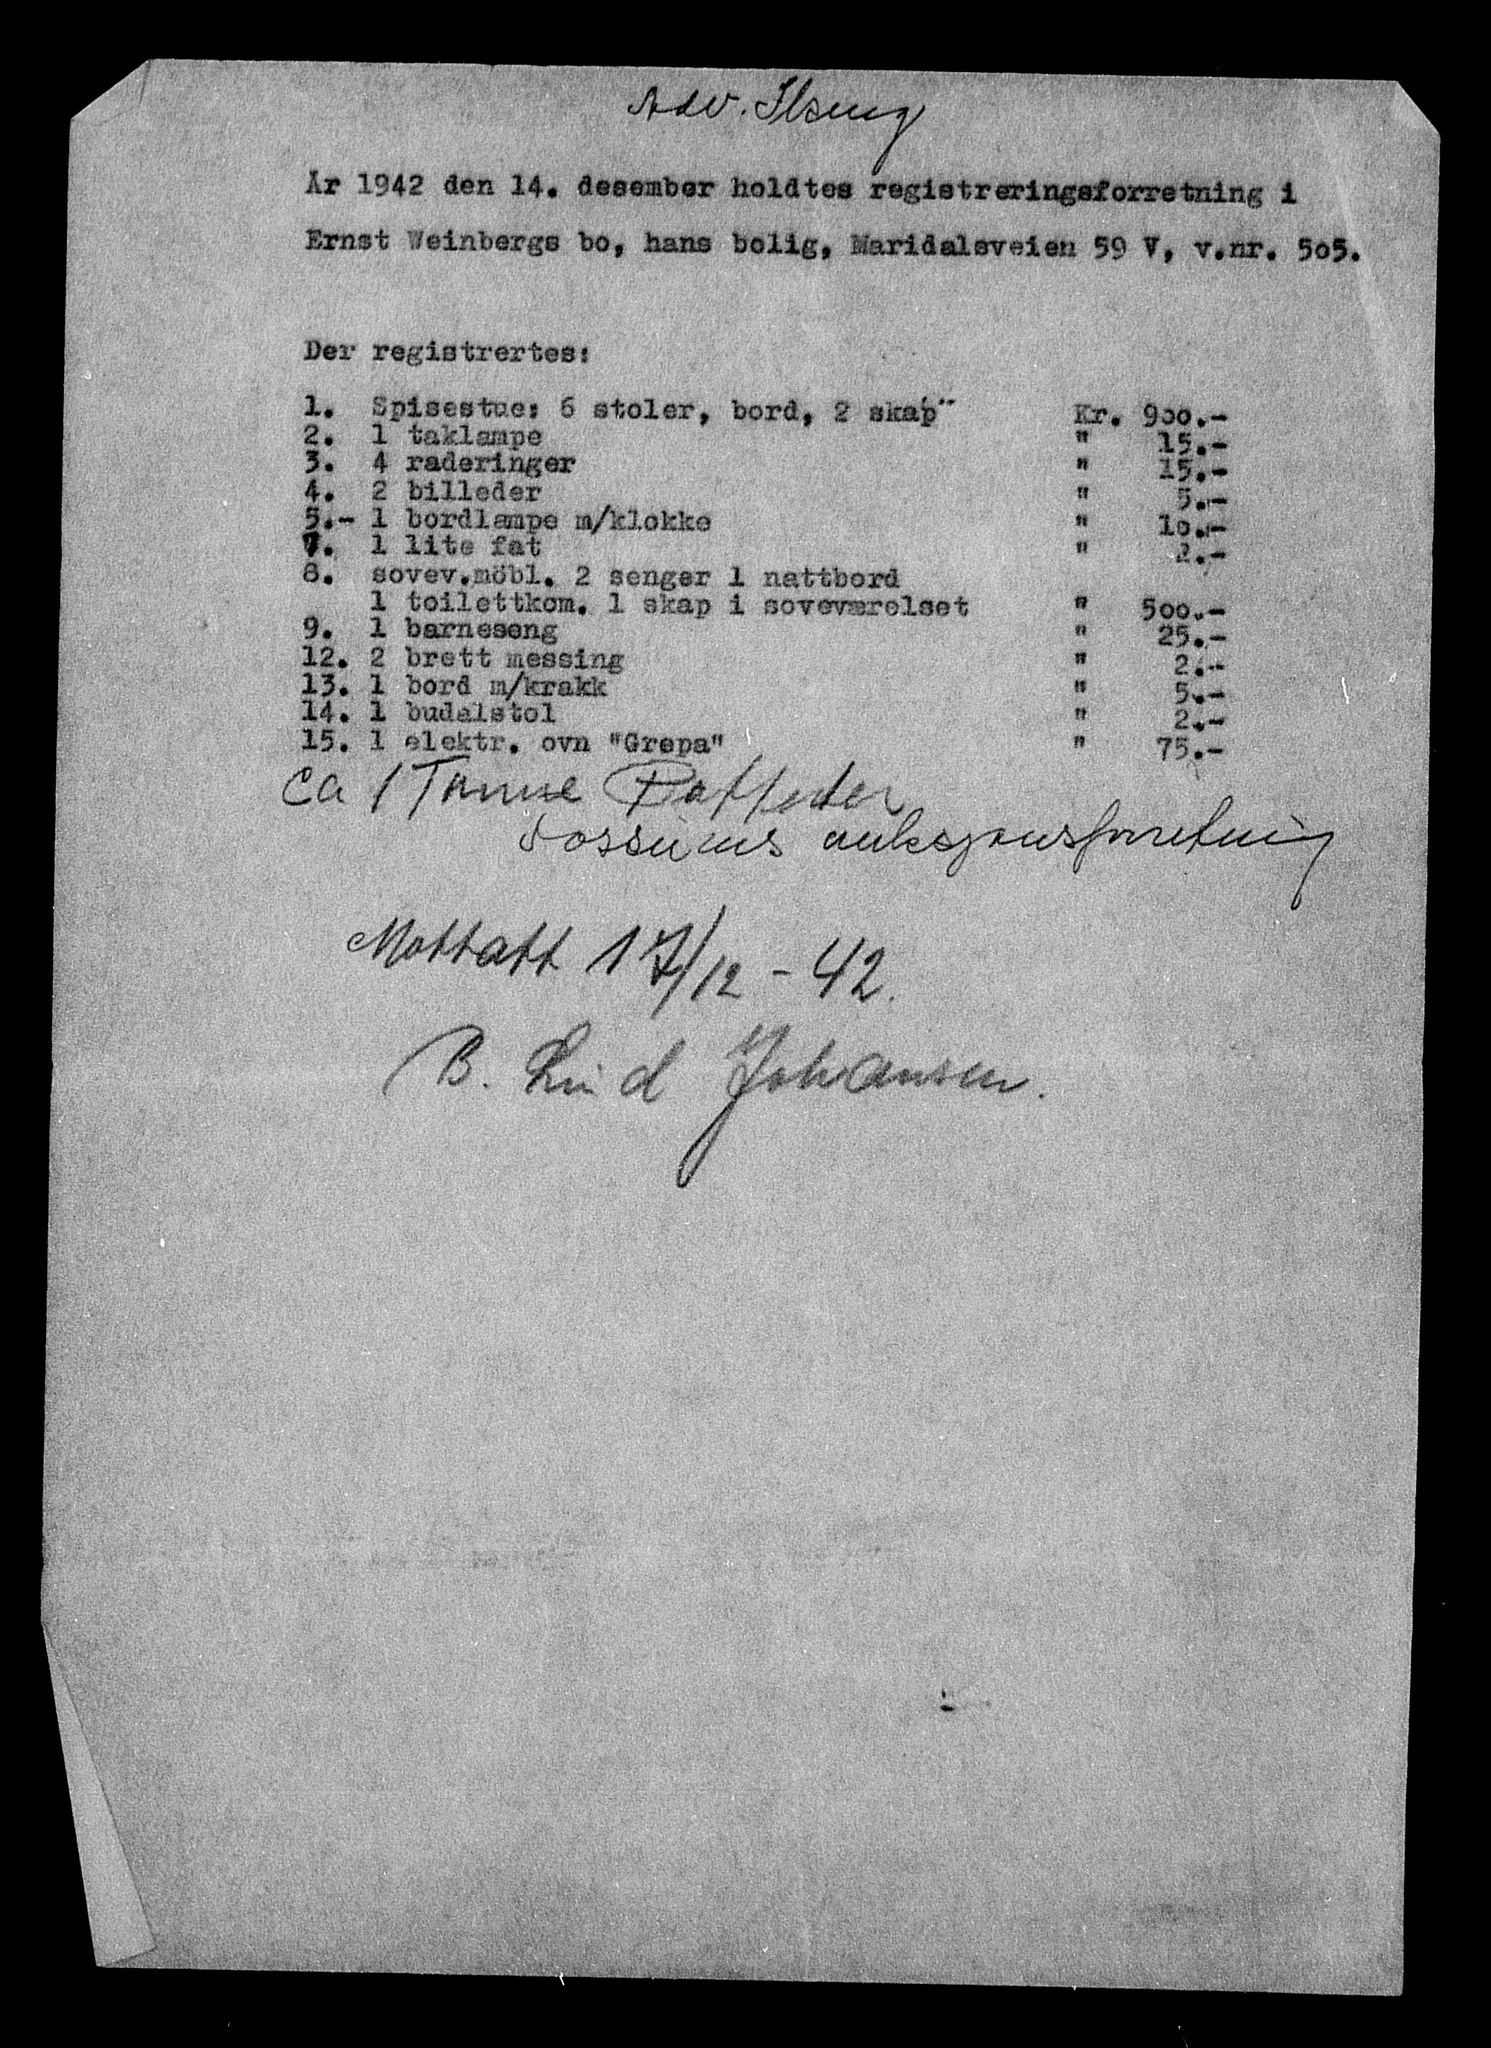 Adv. Ilseng
År 1942 den 14. desember holdtes registreringsforretning i
Ernst Weinbergs bo, hans bolig, Maridalsveien 59 V, v.nr. 505.
Der registrertes:
1. Spisestue: 6 stoler, bord, 2 skap" Kr. 900.-
2. 1 taklampe " 15.-
3. 4 raderinger " 15.-
4. 2 billeder " 5.-
5.- 1 bordlampe m/klokke " 10.-
7. 1 lite fat " 2.-
8. sovev.möbl. 2 senger 1 nattbord
1 toilettkom. 1 skap i soveværelset " 500.-
9. 1 barneseng " 25.-
12. 2 brett messing " 2.-
13. 1 bord m/krakk " 5.-
14. 1 budalstol " 2.-
15. 1 elektr. ovn "Grepa" " 75.-
Ca 1 Tønne
auksjonsforretning
Mottatt 17/12 - 42.
B. Lind Johansen.